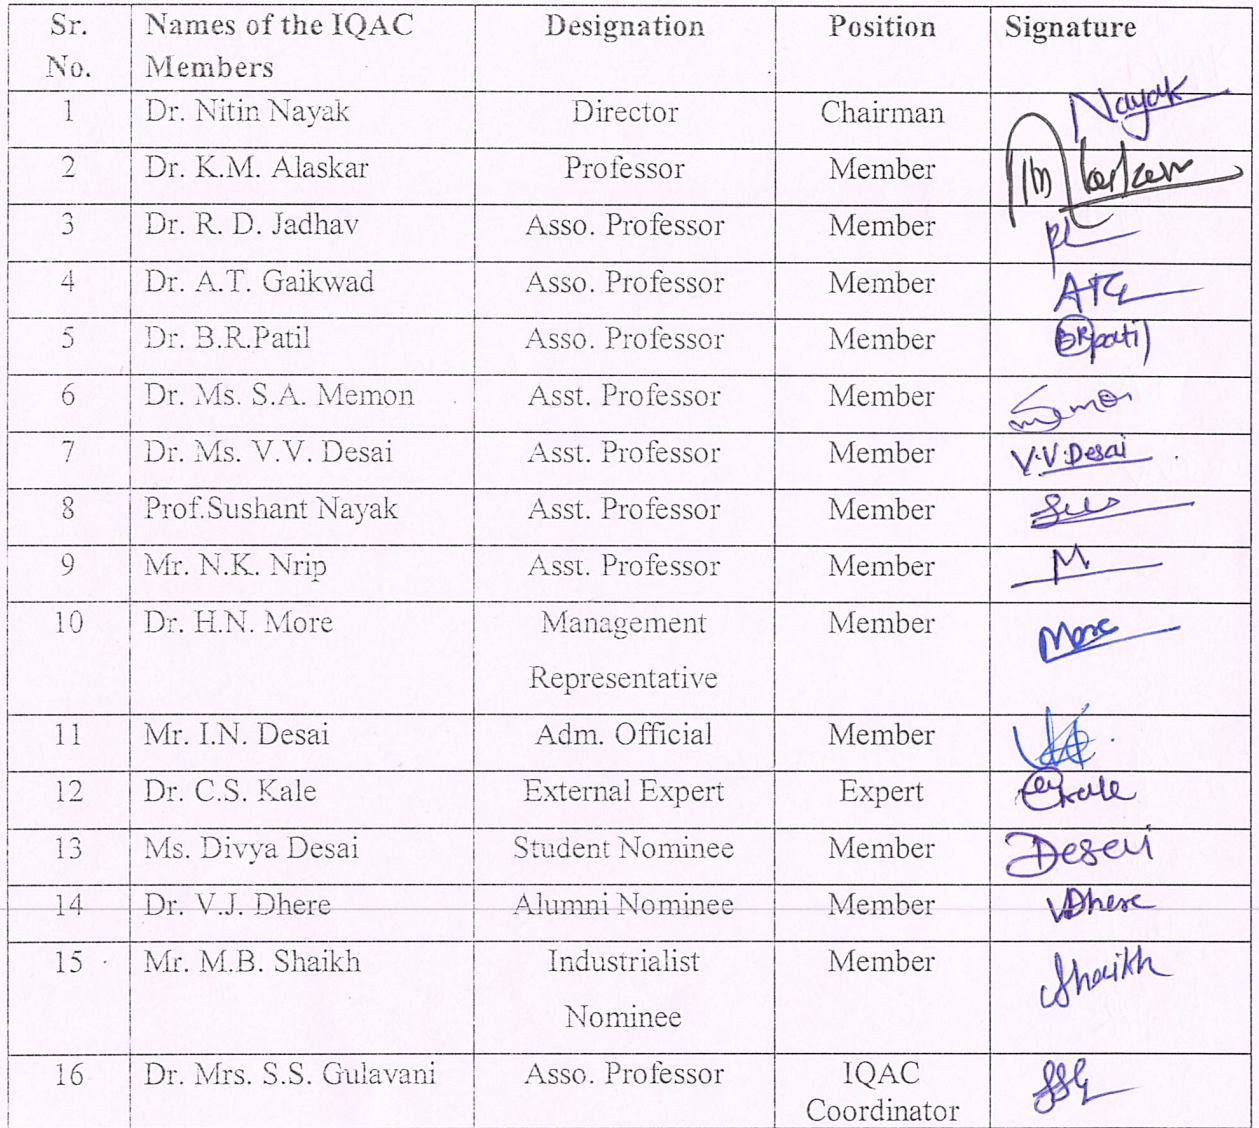 Sr. Names of the IQAC Designation Position Signature
No. Members
1 Dr. Nitin Nayak Director Chairman Nayak
2 Dr. K.M. Alaskar Professor Member
3 Dr. R. D. Jadhav Asso. Professor Member
4 Dr. A.T. Gaikwad Asso. Professor Member ATG
5 Dr. B.R.Patil Asso. Professor Member BRpatil
6 Dr. Ms. S.A. Memon Asst. Professor Member
7 Dr. Ms. V.V. Desai Asst. Professor Member V.V.Desai
8 Prof.Sushant Nayak Asst. Professor Member
9 Mr. N.K. Nrip Asst. Professor Member
10 Dr. H.N. More Management Member More
Representative
11 Mr. I.N. Desai Adm. Official Member
12 Dr. C.S. Kale External Expert Expert
13 Ms. Divya Desai Student Nominee Member Desai
14 Dr. V.J. Dhere Alumni Nominee Member VDhere
15 Mr. M.B. Shaikh Industrialist Member Shaikh
Nominee
16 Dr. Mrs. S.S. Gulavani Asso. Professor IQAC SSG
Coordinator